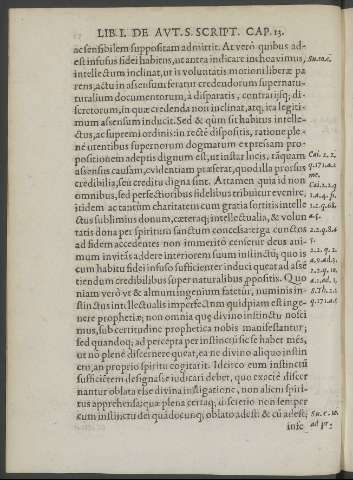 LIB. I. DE AVT. S. SCRIPT. CAP. 13.
ac sensibilem suppositam admittit. At vero quibus ad-
est infusus fidei habitus, ut antea indicare incheavimus,
intellectum inclinat, ut is voluntatis motioni liberæ pa
rens; actu in assensum feratur credendorum supernatu-
turalium documentorum, à disparatis, contrarijsq; di-
scretorum, in quæ credenda non inclinat, atq; ita legiti-
mum assensum inducit. Sed & qùm sit habitus intelle-
ctus, ac supremi ordinis: in rectè dispositis, ratione ple-
nè utentibus supernorum dogmatum expressam pro-
positionem adeptis dignum est, ut instar lucis, tāquam
assensus causam, evidentiam præferat, quod illa prorsus
credibilia, seu creditu digna sint. Attamen quia id non
omnibus, sed perfectioribus fidelibus tribui
itidem ac tantùm charitatem cum gratia sortitis intelle
ctus sublimius donum, cæteraq; intellectualia, & volun
tatis dona per spiritum sanctum concessa: erga cunctos
ad fidem accedentes non immeritò censetur deus ani-
mum invitās addere interiorem suum instinctū; quo is
cum habitu fidei infuso sufficienter induci queat ad assē
tiendum credibilibus supernaturalibus ꝓpositis. Quo
niam verò vt & altmum ingenium fatetur, numinis in-
stinctus intellectualis imperfectum quidpiam est in ge-
nere prophetiæ; non omnia quę divino instinctu nosci
mus, sub certitudine prophetica nobis manifestantur;
sed quandoq; ad percepta per instinctū sic se habet mēs,
ut nō plenè discernere queat, ea ne divino aliquo instin
cto, an proprio spiritu cogitarit. Idcirco eum instinctū
sufficiētem designasse iudicari debet, quo exactè discer
nantur oblata esse divina instigatione, non alieni spiri-
tus apprehensa: quæ plena certaq; discretio non semper
cum instinctu dei quādocunq; oblato adest: & cū adest;
inse
Su. 10. c.
Cai. 2. 2.
q. 171. a. 1
me.
Cai. 2. 2. q
1. a. 4. fi.
a. 5.
2. 2. q. 8. 4
5.
2. 2. q. 2.
a. 9. ad 3.
2. 2. q. 10.
a. 1. ad 1.
S. Th. 2. 2
q. 171. a. 5
Su. c. 10.
ad pr: